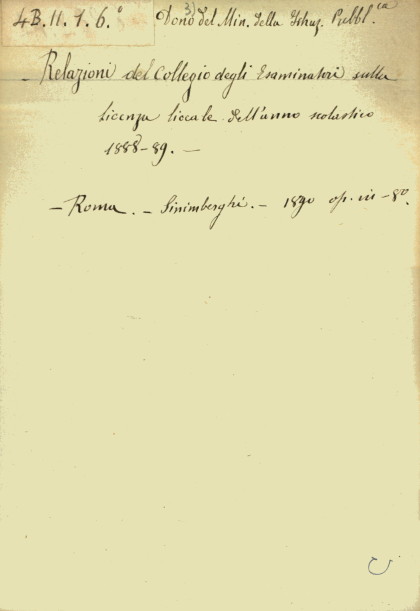 4B. 11. 1. 6.° 3) Dono del Min. della Istruz. Pubbl.ca
- Relazioni del Collegio degli Esaminatori sulla
licenza liceale dell'anno scolastico
1888-89. -
- Roma. - Sinimberghi. - 1890 op. in-8°.